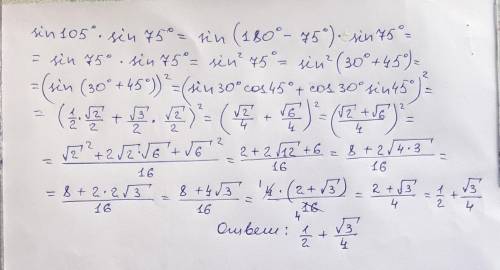 sin105° · sin 75° = sin (180° - 75°) · sin75° =
= sin 75° · sin 75° = sin² 75° = sin² (30° + 45°) =
= (sin (30° + 45°))² = (sin 30° cos 45° + cos 30° sin 45°)² =
= (1/2 · √2/2 + √3/2 · √2/2)² = (√2/4 + √6/4)² = ((√2 + √6)/4)² =
= (√2² + 2√2 · √6 + √6²)/16 = (2 + 2√12 + 6)/16 = (8 + 2√(4·3))/16 =
= (8 + 2 · 2√3)/16 = (8 + 4√3)/16 = ¹4 · (2 + √3)/₄16 = (2 + √3)/4 = 1/2 + √3/4
Ответ: 1/2 + √3/4